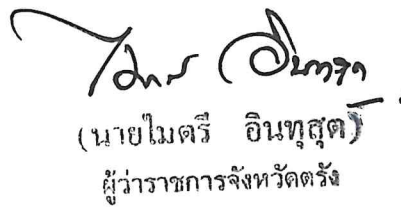 (นายไมตรี อินทุสุต)
ผู้ว่าราชการจังหวัดตรัง